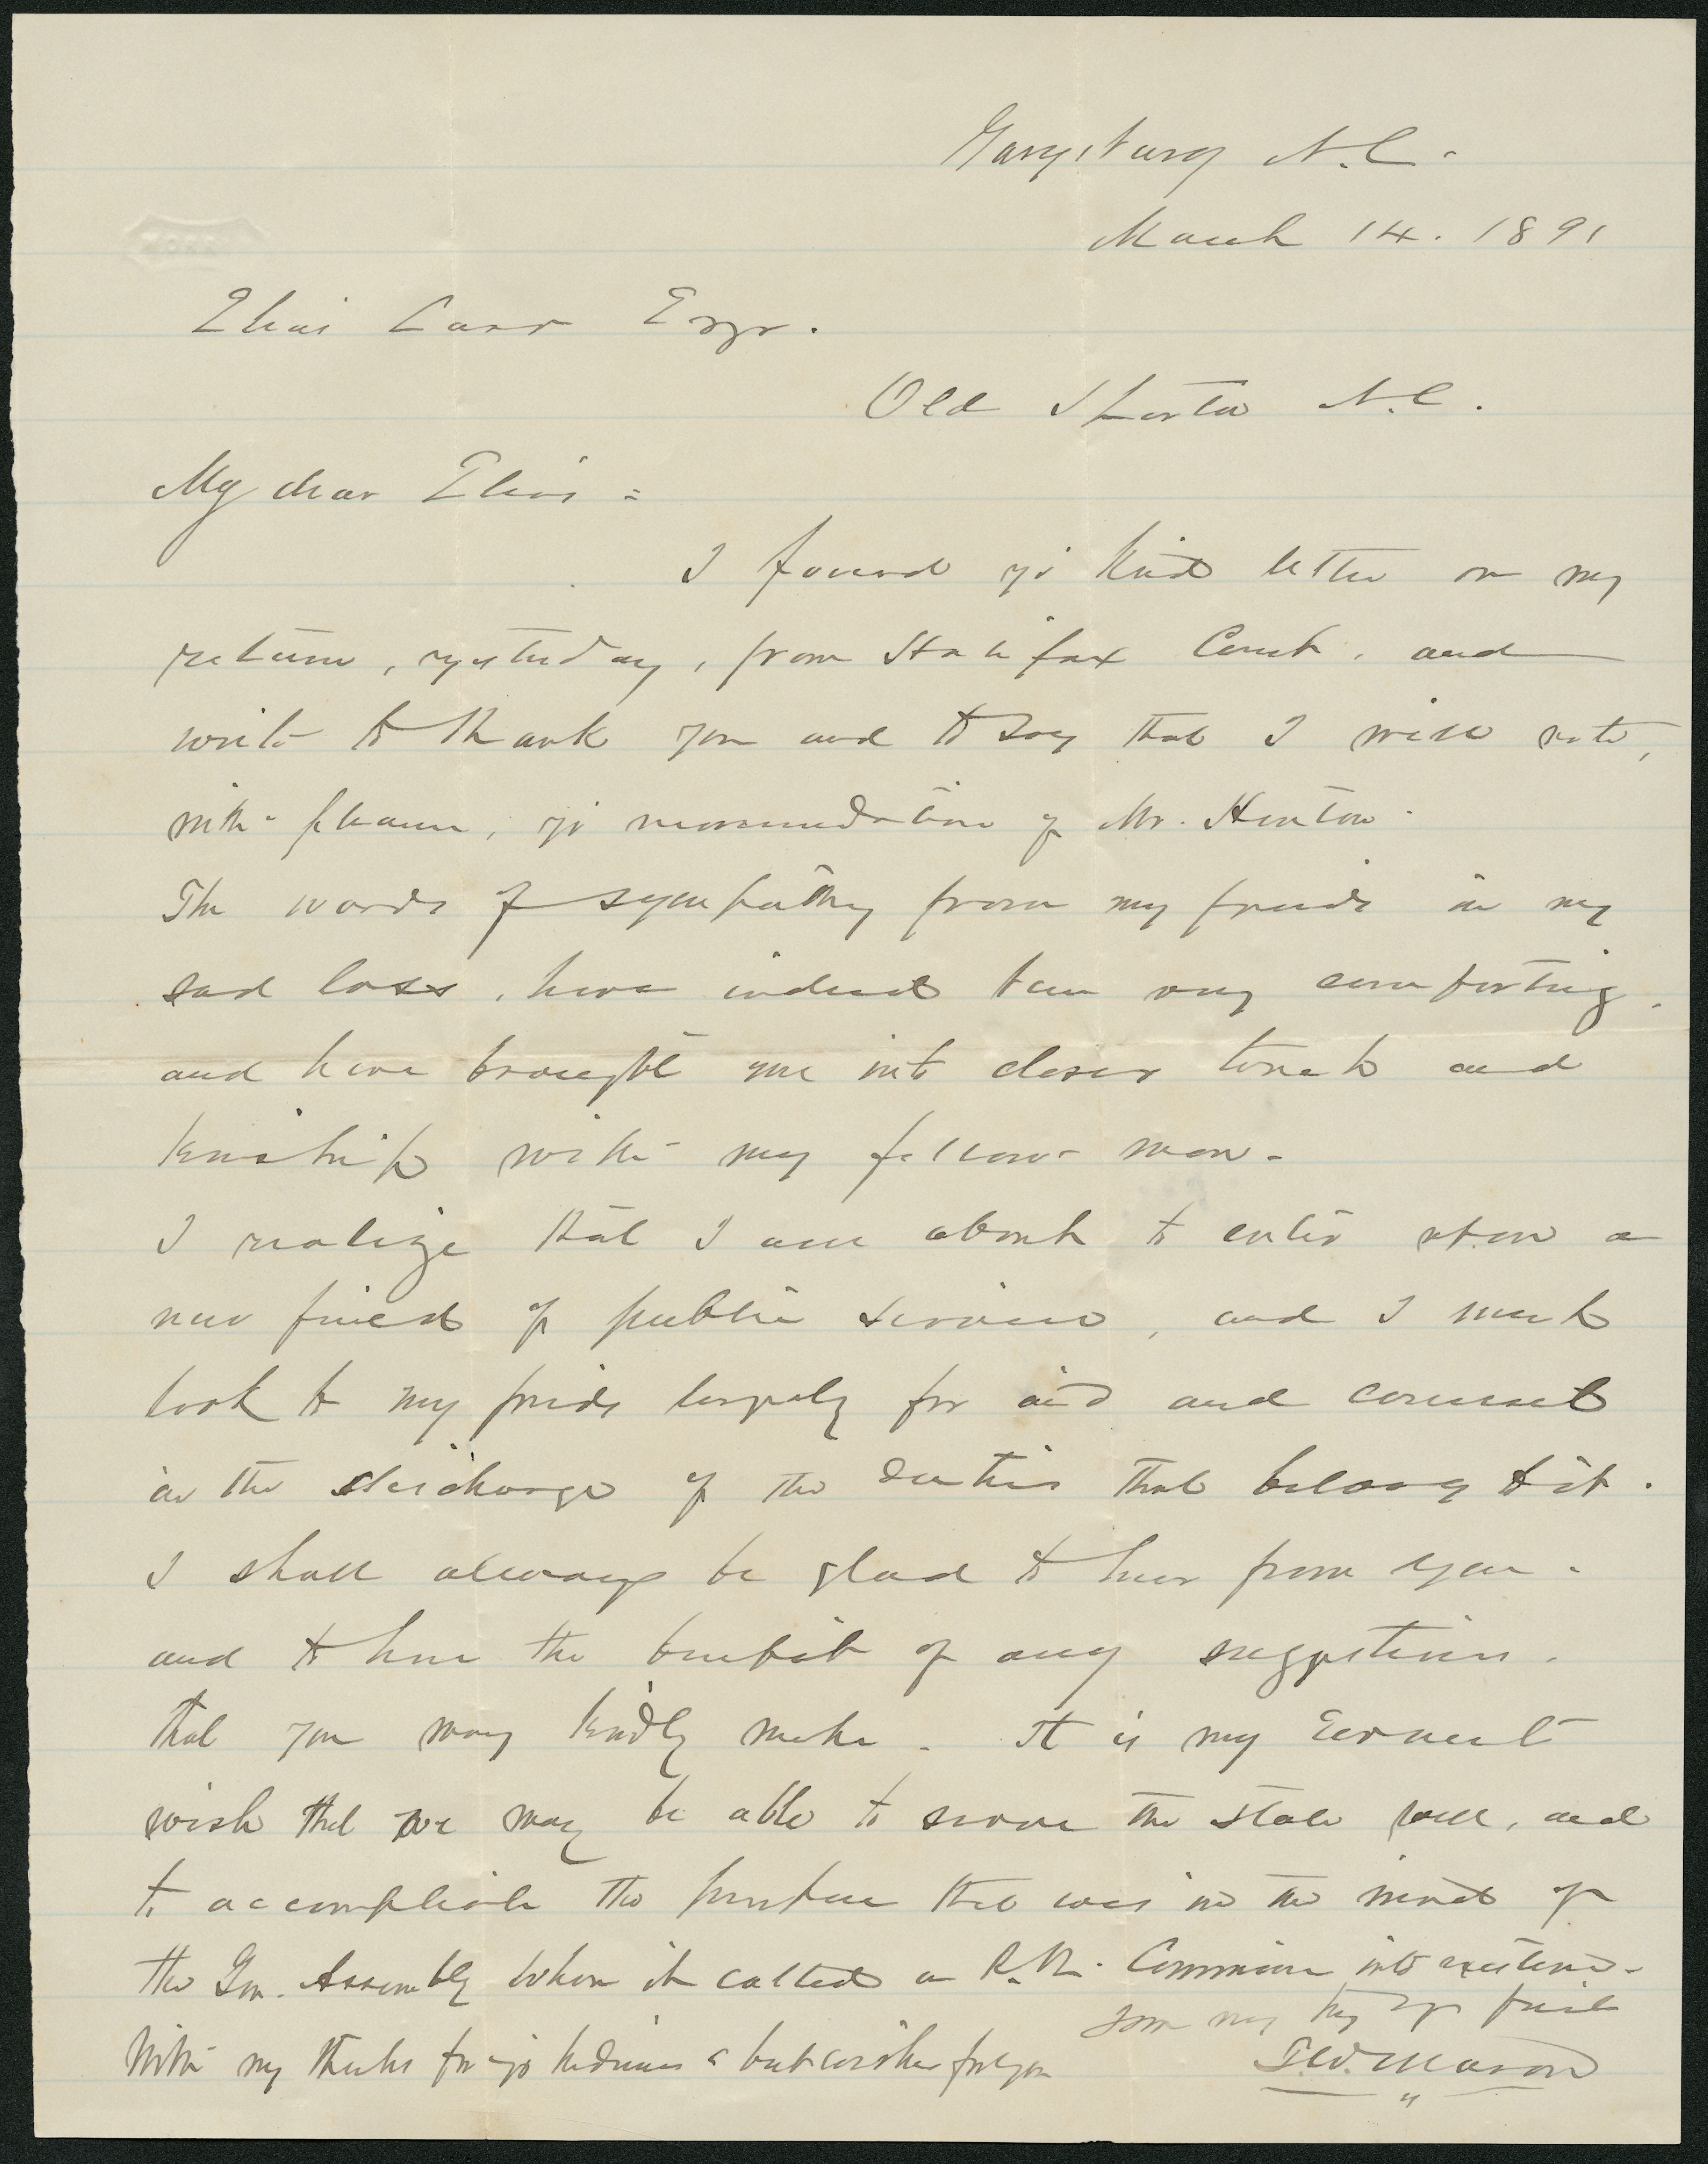 Garysburg N.C.
March 14. 1891
Elias Carr Esqr.
Old Sparta N.C.
My dear Elias =
I found yr kind letter on my
return, yesterday, from Halifax Court, and
write to thank you and to say that I will note,
with pleasure, yr recommendation of Mr. Hinton.
The words of sympathy from my friends in my
sad loss, have indeed been very comforting,
and have brought me into closer touch and
kinship with my fellow man.
I realize that I am about to enter upon a
new field of public service, and I must
look to my friends largely for aid and counsel
in the discharge of the duties that belong to it.
I shall always be glad to hear from you,
and to have the benefit of any suggestions,
that you may kindly make. It is my earnest
wish that we may be able to serve the State well, and
to accomplish the purpose that was in the mind of
the Gen. Assembly when it called a R.R. Commission into existence.
With my thanks for yr kindness & best wishes for you
I am my yr friend
T.W. Mason